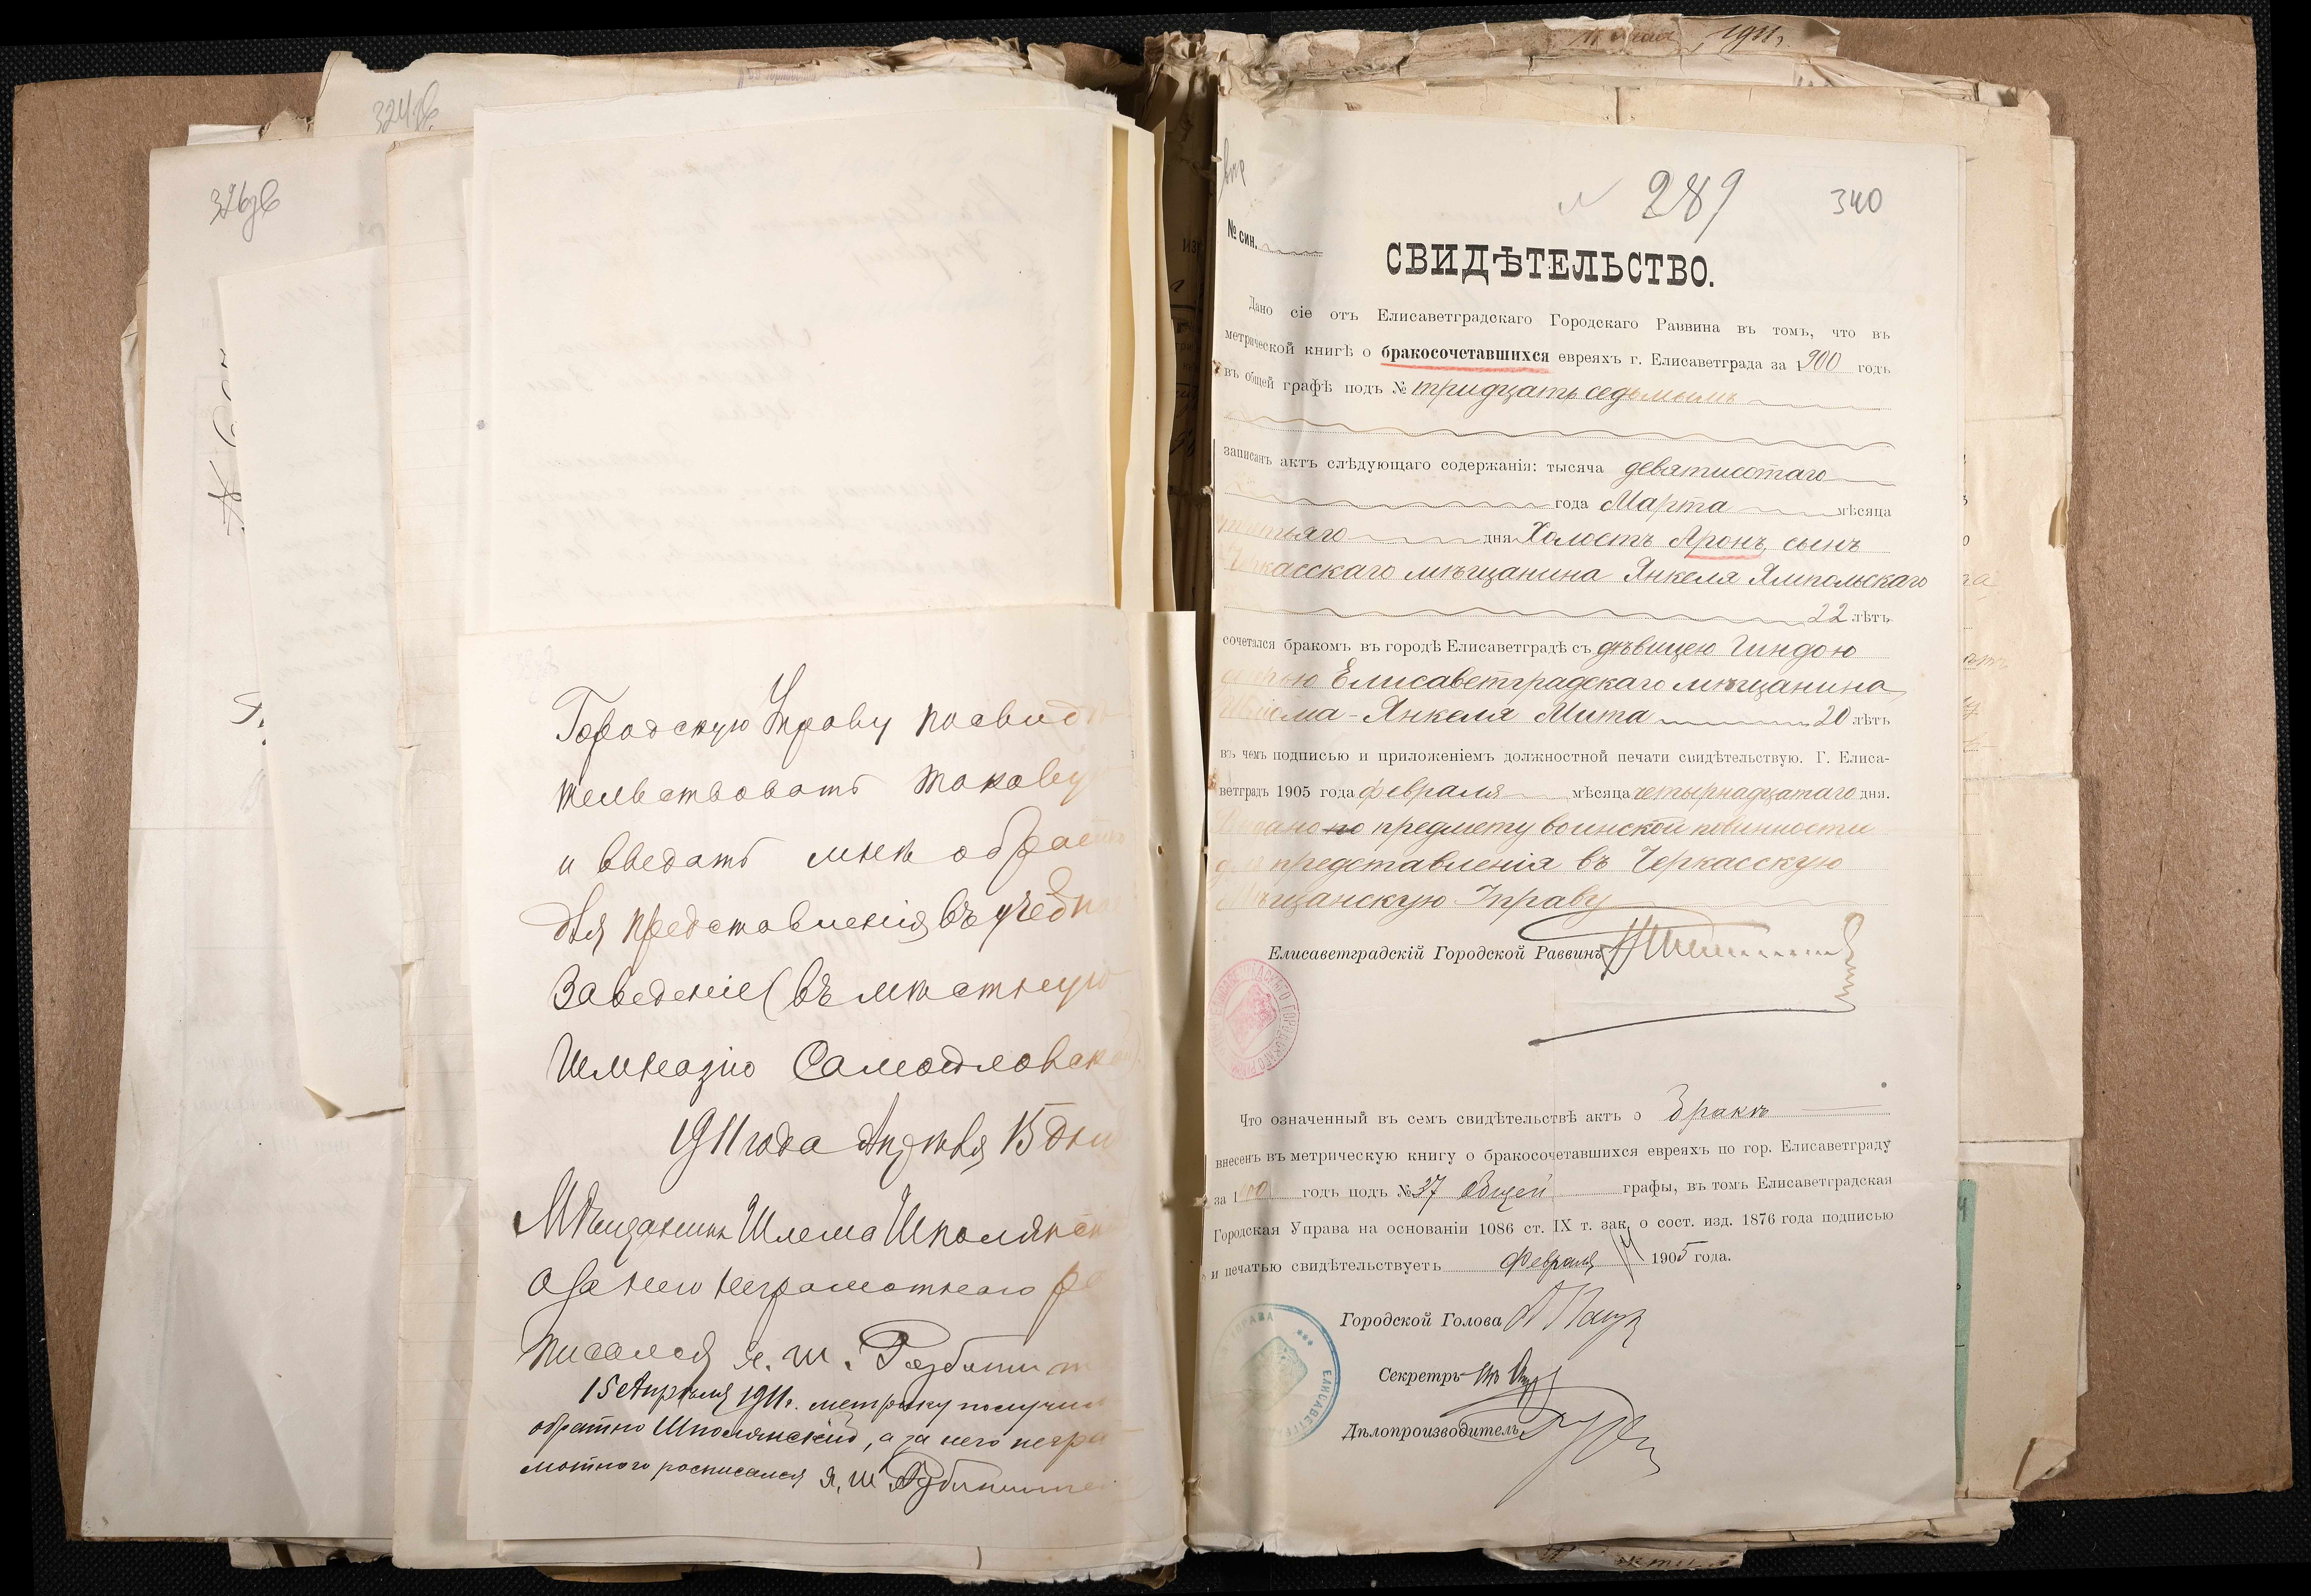 324 об.
326 об
Городскую Управу посвидѣ-
тельствовать таковую
и выдать мнѣ обратно
для представленія въ учебное
Заведеніе (въ мѣстную
Гимназію
1911 года Апрѣля 15 дня
Мѣщанинъ Шлема Шполянскій
а за него неграмотнаго рос
писался я. Ш.
15 Апрѣля 1911 г. метрику получилъ
обратно Шполянскій, а за него негра-
мотнаго росписался Я. Ш
1911 г.
289
340
№ син.
СВИДѢТЕЛЬСТВО.
Дано сіе отъ Елисаветградскаго Городскаго Раввина въ томъ, что въ
метрической книгѣ о бракосочетавшихся евреяхъ г. Елисаветграда за 1900 годъ
въ общей графѣ подъ № тридцать седьмымъ
записанъ актъ слѣдующаго содержанія: тысяча девятисотаго
года Марта мѣсяца
третьяго дня Холостъ Аронъ, сынъ
Черкасскаго мѣщанина Янкеля Ямпольскаго
22 лѣтъ
сочетался бракомъ въ городѣ Елисаветградѣ съ дѣвицею Гиндою
дочерью Елисаветградскаго мѣщанина,
Янкеля Мита 20 лѣтъ
въ чемъ подписью и приложеніемъ должностной печати свидѣтельствую. Г. Елиса-
ветградъ 1905 года февраля мѣсяца четырнадцатаго дня.
по предмету воинской повинности
для представленія въ Черкасскую
Мѣщанскую Управу
Елисаветградскій Городской Раввинъ
Что означенный въ семъ свидѣтельствѣ актъ о бракѣ
внесенъ въ метрическую книгу о бракосочетавшихся евреяхъ по гор. Елисаветграду
за 1900 годъ подъ № 37 общей графы, въ томъ Елисаветградская
Городская Управа на основаніи 1086 ст. IX т. зак. о сост. изд. 1876 года подписью
и печатью свидѣтельствуетъ Февраля 14 1905 года.
Городской Голова
Секретрь
Дѣлопроизводитель